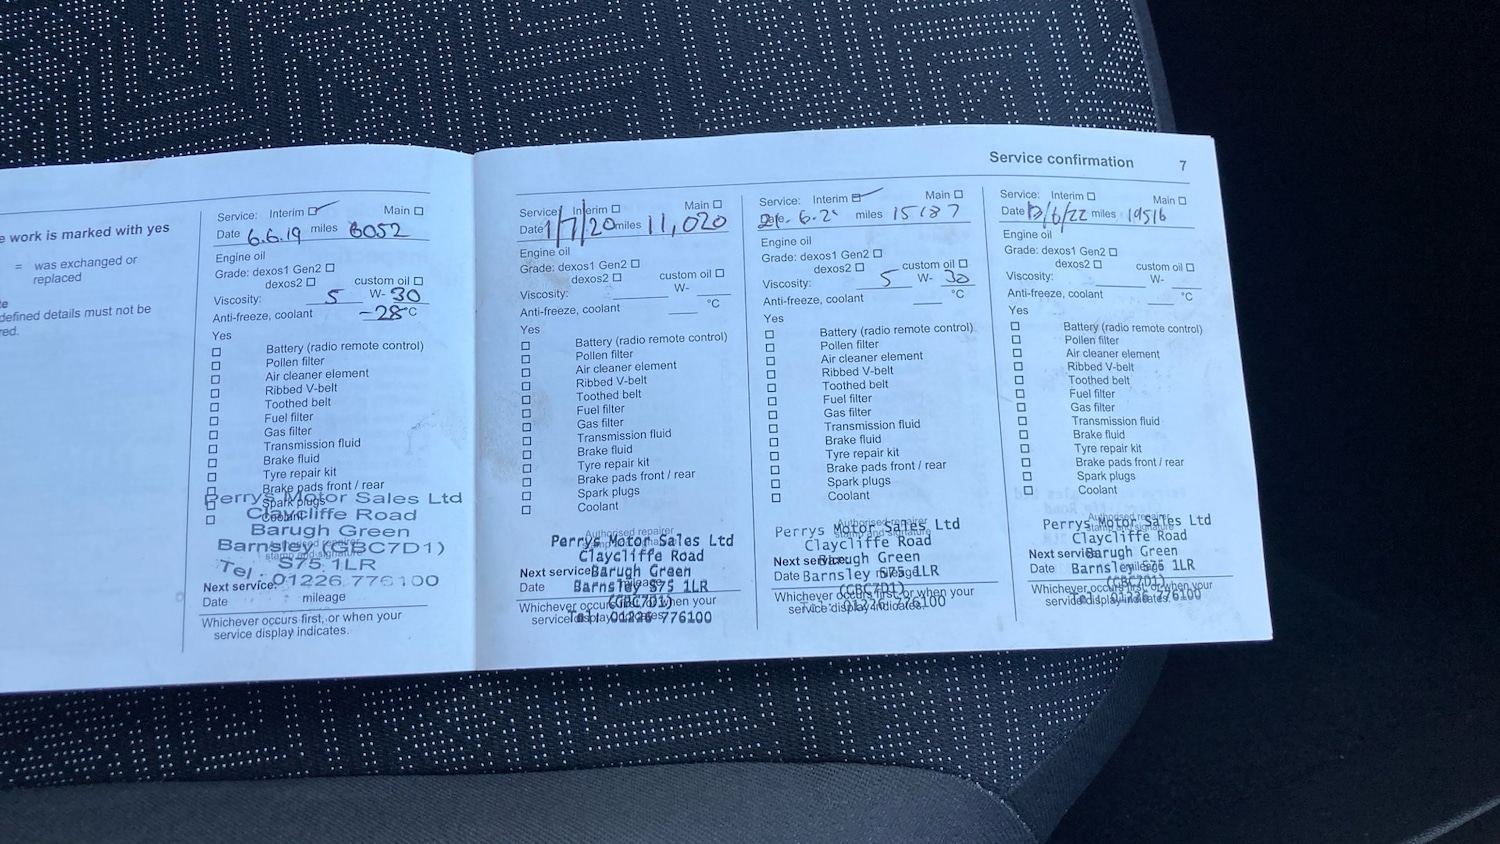 Service confirmation 7
e work is marked with yes
= was exchanged or
replaced
defined details must not be
red.
Service: Interim Main
Date 6.6.19 miles 6052
Engine oil
Grade: dexos1 Gen2
dexos2 custom oil
Viscosity: 5 W-30
Anti-freeze, coolant -28°C
Yes
Battery (radio remote control)
Pollen filter
Air cleaner element
Ribbed V-belt
Toothed belt
Fuel filter
Gas filter
Transmission fluid
Brake fluid
Tyre repair kit
Brake pads front / rear
Spark plugs
Coolant
Perrys Motor Sales Ltd
Claycliffe Road
Barugh Green
Barnsley (GBC7D1)
S75 1LR
Tel: 01226 776100
Next service:
Date mileage
Whichever occurs first, or when your
service display indicates.
Service: Interim Main
Date 1/7/20 miles 11,020
Engine oil
Grade: dexos1 Gen2
dexos2 custom oil
Viscosity: W-
Anti-freeze, coolant °C
Yes
Battery (radio remote control)
Pollen filter
Air cleaner element
Ribbed V-belt
Toothed belt
Fuel filter
Gas filter
Transmission fluid
Brake fluid
Tyre repair kit
Brake pads front / rear
Spark plugs
Coolant
Authorised repairer
Perrys Motor Sales Ltd
Claycliffe Road
Next service: Barugh Green
Date Barnsley S75 1LR
(GBC7D1)
Whichever occurs first, or when your
service display indicates.
Tel: 01226 776100
Service: Interim Main
Date miles 15187
Engine oil
Grade: dexos1 Gen2
dexos2 custom oil
Viscosity: 5 W-30
Anti-freeze, coolant °C
Yes
Battery (radio remote control)
Pollen filter
Air cleaner element
Ribbed V-belt
Toothed belt
Fuel filter
Gas filter
Transmission fluid
Brake fluid
Tyre repair kit
Brake pads front / rear
Spark plugs
Coolant
Authorised repairer
stamp and signature
Perrys Motor Sales Ltd
Claycliffe Road
Next service: Barugh Green
Date Barnsley S75 1LR
mileage
Whichever occurs first, or when your
service display indicates.
Service: Interim Main
Date miles 19516
Engine oil
Grade: dexos1 Gen2
dexos2 custom oil
Viscosity: W-
Anti-freeze, coolant °C
Yes
Battery (radio remote control)
Pollen filter
Air cleaner element
Ribbed V-belt
Toothed belt
Fuel filter
Gas filter
Transmission fluid
Brake fluid
Tyre repair kit
Brake pads front / rear
Spark plugs
Coolant
Authorised repairer
Perrys Motor Sales Ltd
Claycliffe Road
Next service: Barugh Green
Date Barnsley S75 1LR
Whichever occurs first, or when your
service display indicates.